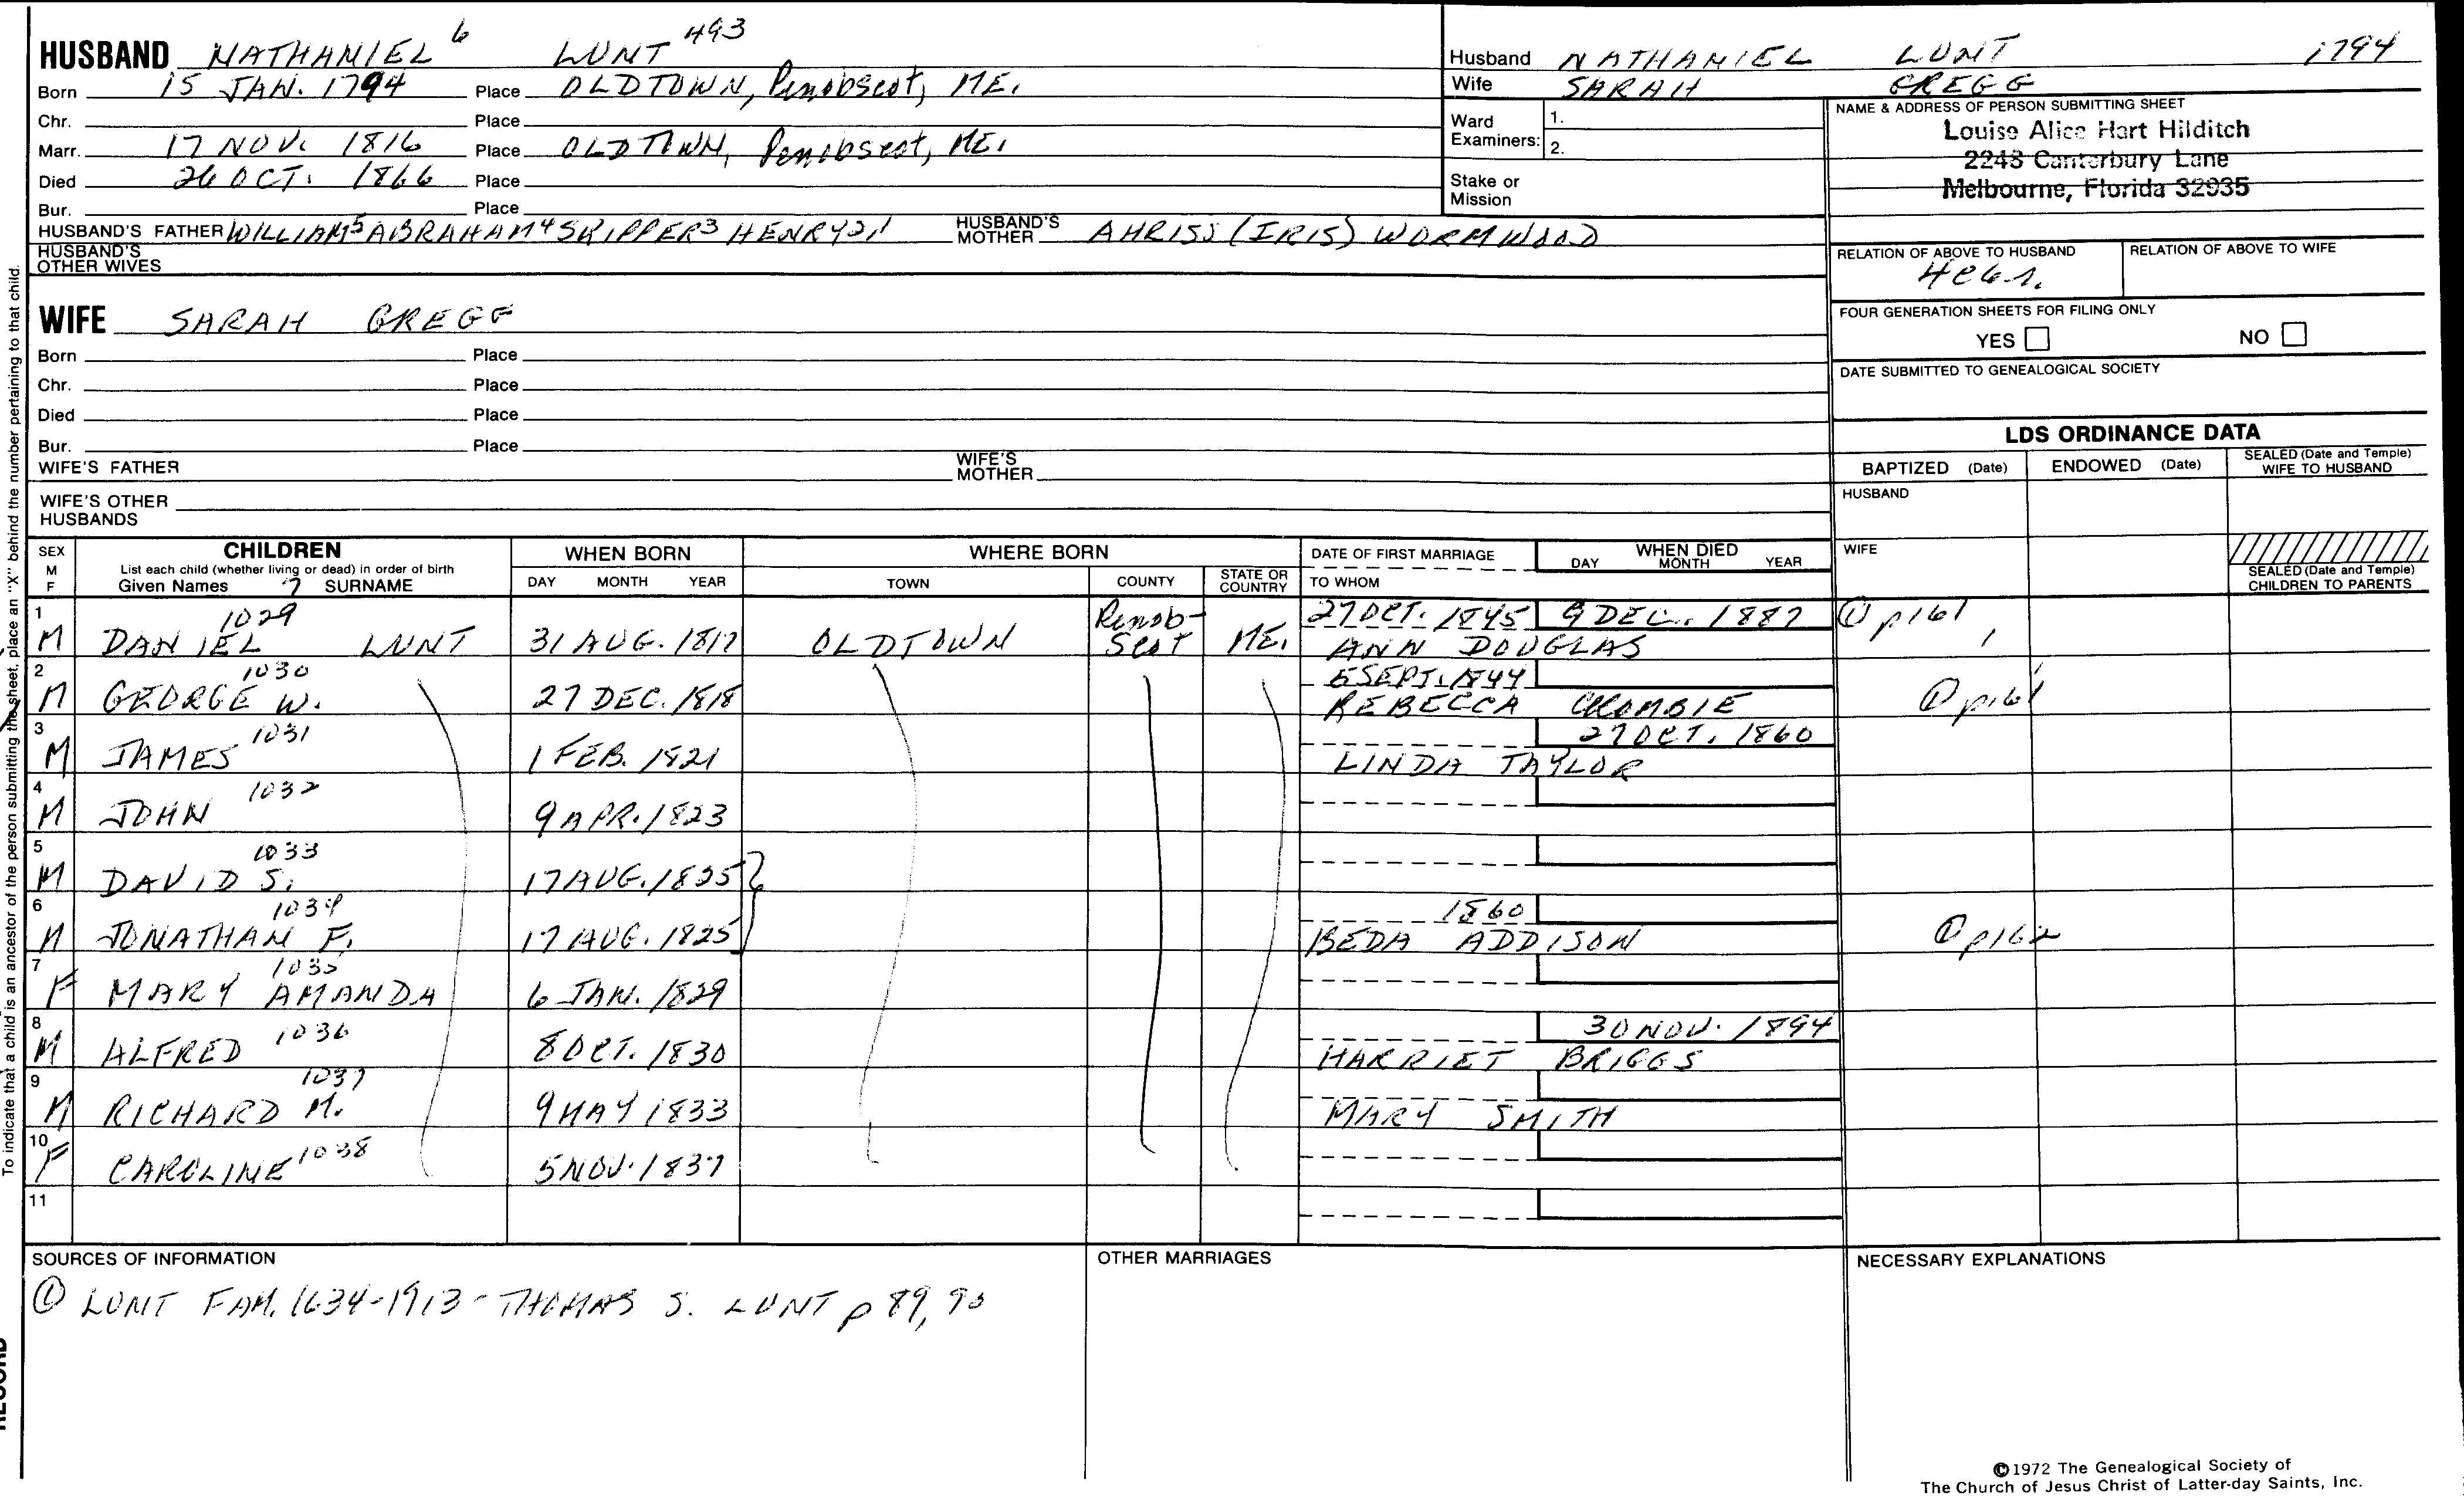 HUSBAND NATHANIEL 6 LUNT 493
Born 15 JAN. 1794 Place OLDTOWN, Penobscot, ME.
Chr. Place
Marr. 17 NOV. 1816 Place OLDTOWN, Penobscot, ME.
Died 26 OCT. 1866 Place
Bur. Place
HUSBAND'S FATHER WILLIAM5 ABRAHAM4 SKIPPER3 HENRY2,1 HUSBAND'S MOTHER AHRISS (IRIS) WORMWOOD
HUSBAND'S OTHER WIVES
WIFE SARAH GREGG
Born Place
Chr. Place
Died Place
Bur. Place
WIFE'S FATHER WIFE'S MOTHER
WIFE'S OTHER HUSBANDS
Husband NATHANIEL LUNT 1794
Wife SARAH GREGG
Ward Examiners: 1.
2.
Stake or Mission
NAME & ADDRESS OF PERSON SUBMITTING SHEET
Louise Alice Hart Hilditch
2248 Canterbury Lane
Melbourne, Florida 32935
RELATION OF ABOVE TO HUSBAND RELATION OF ABOVE TO WIFE
FOUR GENERATION SHEETS FOR FILING ONLY
YES NO
DATE SUBMITTED TO GENEALOGICAL SOCIETY
LDS ORDINANCE DATA
BAPTIZED (Date) ENDOWED (Date) SEALED (Date and Temple) WIFE TO HUSBAND
HUSBAND
WIFE
SEALED (Date and Temple) CHILDREN TO PARENTS
SEX M F CHILDREN WHEN BORN WHERE BORN DATE OF FIRST MARRIAGE WHEN DIED
List each child (whether living or dead) in order of birth
Given Names 7 SURNAME DAY MONTH YEAR TOWN COUNTY STATE OR COUNTRY TO WHOM DAY MONTH YEAR
1 1029 27 OCT. 1845 9 DEC. 1887 ① p161
M DANIEL LUNT 31 AUG. 1817 OLDTOWN Penobscot ME. ANN DOUGLAS
2 1030 5 SEPT. 1844
M GEORGE W. 27 DEC. 1818 REBECCA CROMBIE ① p161
3 1031 27 OCT. 1860
M JAMES 1 FEB. 1821 LINDA TAYLOR
4 1032
M JOHN 9 APR. 1823
5 1033
M DAVID S. 17 AUG. 1825
6 1034 1860
M JONATHAN F. 17 AUG. 1825 BEDA ADDISON ① p162
7 1035
F MARY AMANDA 6 JAN. 1829
8 1036 30 NOV. 1894
M ALFRED 8 OCT. 1830 HARRIET BRIGGS
9 1037
M RICHARD M. 9 MAY 1833 MARY SMITH
10 1038
F CAROLINE 5 NOV. 1837
11
SOURCES OF INFORMATION OTHER MARRIAGES NECESSARY EXPLANATIONS
① LUNT FAM. 1634-1913 - THOMAS S. LUNT p 89, 90
©1972 The Genealogical Society of
The Church of Jesus Christ of Latter-day Saints, Inc.
To indicate that a child is an ancestor of the person submitting the sheet, place an "X" behind the number pertaining to that child.